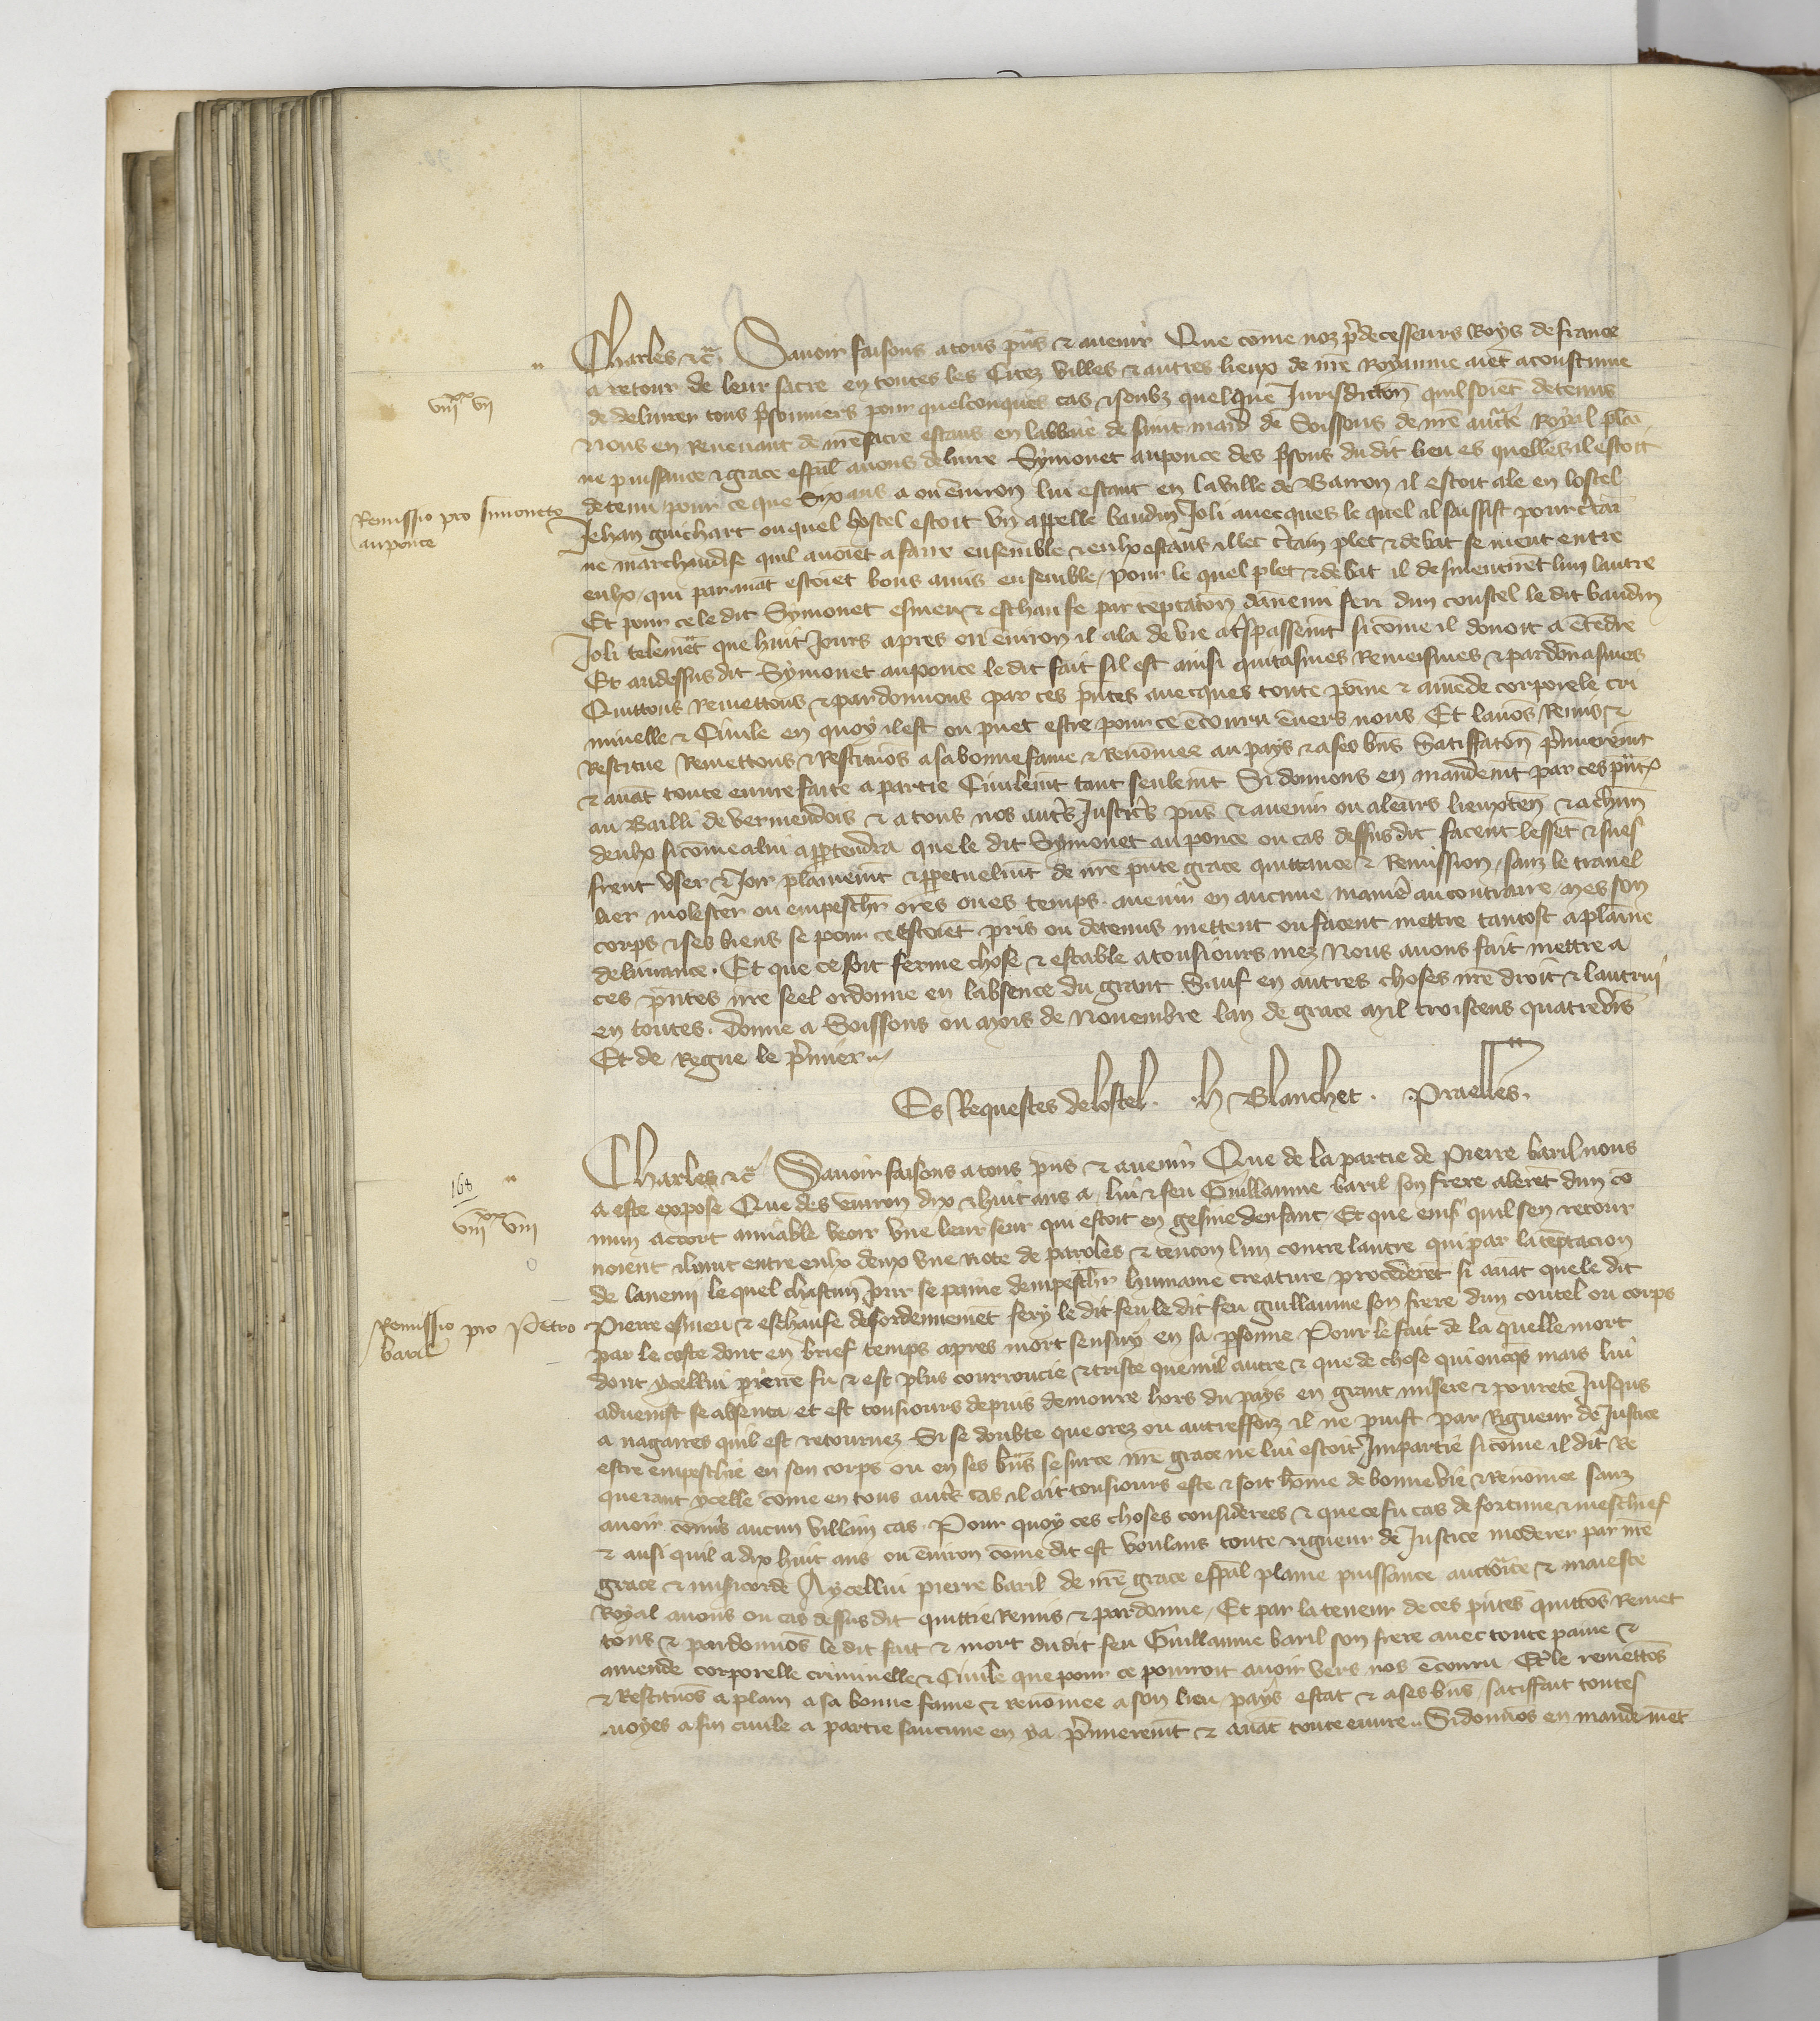 Charles &c̃. Sauoir faisons a tous p̃ns & auenir Que cõme noz p̃decesseurs Roys de france
a retour de leur sacre en toutes les Citez villes & autres lieux de nr̃e Royaume aiẽt acoustume
viiixx vii
de deliurer tous p̃sonniers pour quelconques cas & soubz quelque Jurisdictoñ quil soiẽt detenus
Nous en Reuenant de nr̃e sacre estans en labbaie de saint mard de Soissons de nr̃e auct̃e Royal plai
ne puissance & grace esp̃al auons deliure Symonet auponce des p̃sons du dit lieu es quelles il estoit
detenu pour ce que Six ans a ou ẽuiron lui estant en la ville de Barron il estoit ale en lostel
Remissio pro simoneto
auponce
Jehan guichart ou quel hostel estoit vn appelle baudin Joli auecques le quel il feussist pour c̃tai
ne marchandise quil auoiẽt a faire ensemble & eulx estans illec c̃tain plet & debat se meut entre
eulx qui parauãt estoiẽt bons amis ensemble / pour le quel plet & debat il desmentirẽt lun lautre
Et pour ce le dit Symonet esmeu & eschaufe par teptatoñ dãnemi feri dun coustel le dit baudin
Joli telemẽt que huit Jours apres ou ẽuiron il ala de vie a t̃spassem̃t si cõme il donoit a ẽtẽdre
Et au dessusdit Symonet auponce le dit fait sil est ainsi quitasmes Remeismes & pardõnasmes
Quittons Remettons & pardonnons par ces p̃ntes auecques toute põine & amẽde corporele cri
minelle & Ciuile en quoy il est ou puet estre pour ce ẽcouru ẽuers nous Et lauõs Remis &
Restitue Remettons & Restituõs a sa bonne fame & Renõmee au pays & a ses bñs Satiffatoñ p̃mierem̃t
& auãt toute euure faite a partie Ciuilem̃t tant seulem̃t Si donnons en mandem̃t par ces p̃nt̃
au Bailli de vermendois & a tous nos aut̃s Justic̃s p̃ns & auenir ou a leurs lieuxteñ & a ch̃un
deulx si cõme a lui appartendra que le dit Symonet auponce ou cas dessusdit facent lessẽt & suef
frent vser & Joir plainem̃t & perpetuelm̃t de nr̃e p̃nte grace quittance & Remission / sanz le trauel
lier molester ou empesch̃r ores ou es temps auenir en aucune manie᷑ au contraire Mes son
corps & ses biens se pour ce estoiẽt pris ou detenus mettent ou facent mettre tantost a plaine
deliurance. Et que ce soit ferme chose & estable a tousiours mez Nous auons fait mettre a
ces p̃ntes nr̃e seel ordonne en labsence du grant Sauf en autres choses nr̃e droit & lautrui
en toutes. Donne a Soissons ou Mois de Nouembre lan de grace Mil troiscens quatrevĩs
Et de Regne le p̃mier
Es Requestes de lostel. H Blanchet. Praelles.
Charles &c̃ Sauoir faisons a tous p̃ns & auenir Que de la partie de Pierre baril nous
168
a este expose Que des ẽuiron dix & huit ans a, lui & feu Guillaume baril son frere alerẽt dun cõ
viiixx viii
mun accort amiable veoir vne leur seur qui estoit en gesine denfant / Et que eins̃ quil sen retour
noient il mut entre eulx deux vne Note de paroles & tencon lun contre lautre qui par la tẽptacion
de lanemi le quel chascun Jour se paine dempesch̃r humaine creature procederẽt si auãt que le dit
Remissio pro Petro
baril
Pierre esmeu & eschaufe desordeneemẽt fery le dit feu le dit feu guillaume son frere dun coutel ou corps
par le coste dont en brief temps apres mort sensuy en sa p̃sonne Pour le fait de la quelle mort
dont ycellui pierre fu & est plus courroucie & triste que nul autre & que de chose qui oncq̃s mais lui
aduenist se absenta et est tousiours depuis demoure hors du pays en grant misere & pourete Jusques
a nagaires quil est retournez Si se doubte que orez ou autreffoiz il ne puist par Rigueur de Justice
estre empeschie en son corps ou en ses biẽs se surce nr̃e grace ne lui estoit Impartie si cõme il dit Re
querant ycelle cõme en tous aut̃s cas il ait tousiours este & soit hõme de bonne vie & Renõmee sanz
auoir cõmis aucun villain cas. Pour quoy ces choses considerees & que ce fu cas de fortune & meschief
& ausi quil a dix huit ans ou ẽuiron cõme dit est voulans toute rigueur de Justice moderer par nr̃e
grace & misericorde A ycellui pierre baril de nr̃e grace esp̃al plaine puissance auctorite & maieste
Royal auons ou cas dessusdit quittie Remis & pardonne / Et par la teneur de ces p̃ntes quittõs Remet
tons & pardonnõs le dit fait & mort dudit feu Guillaume baril son frere auec toute paine &
amende corporelle criminelle & Ciuile que pour ce pourroit auoir vers nos ẽcouru Et le remettõs
& Restituõs a plain a sa bonne fame & renõmee a son lieu pays estat & a ses bñs / satiffait toutes
uoyes a fin ciuile a partie saucune en ya p̃mierem̃t & auãt toute euure. Si donnõs en mandemẽt